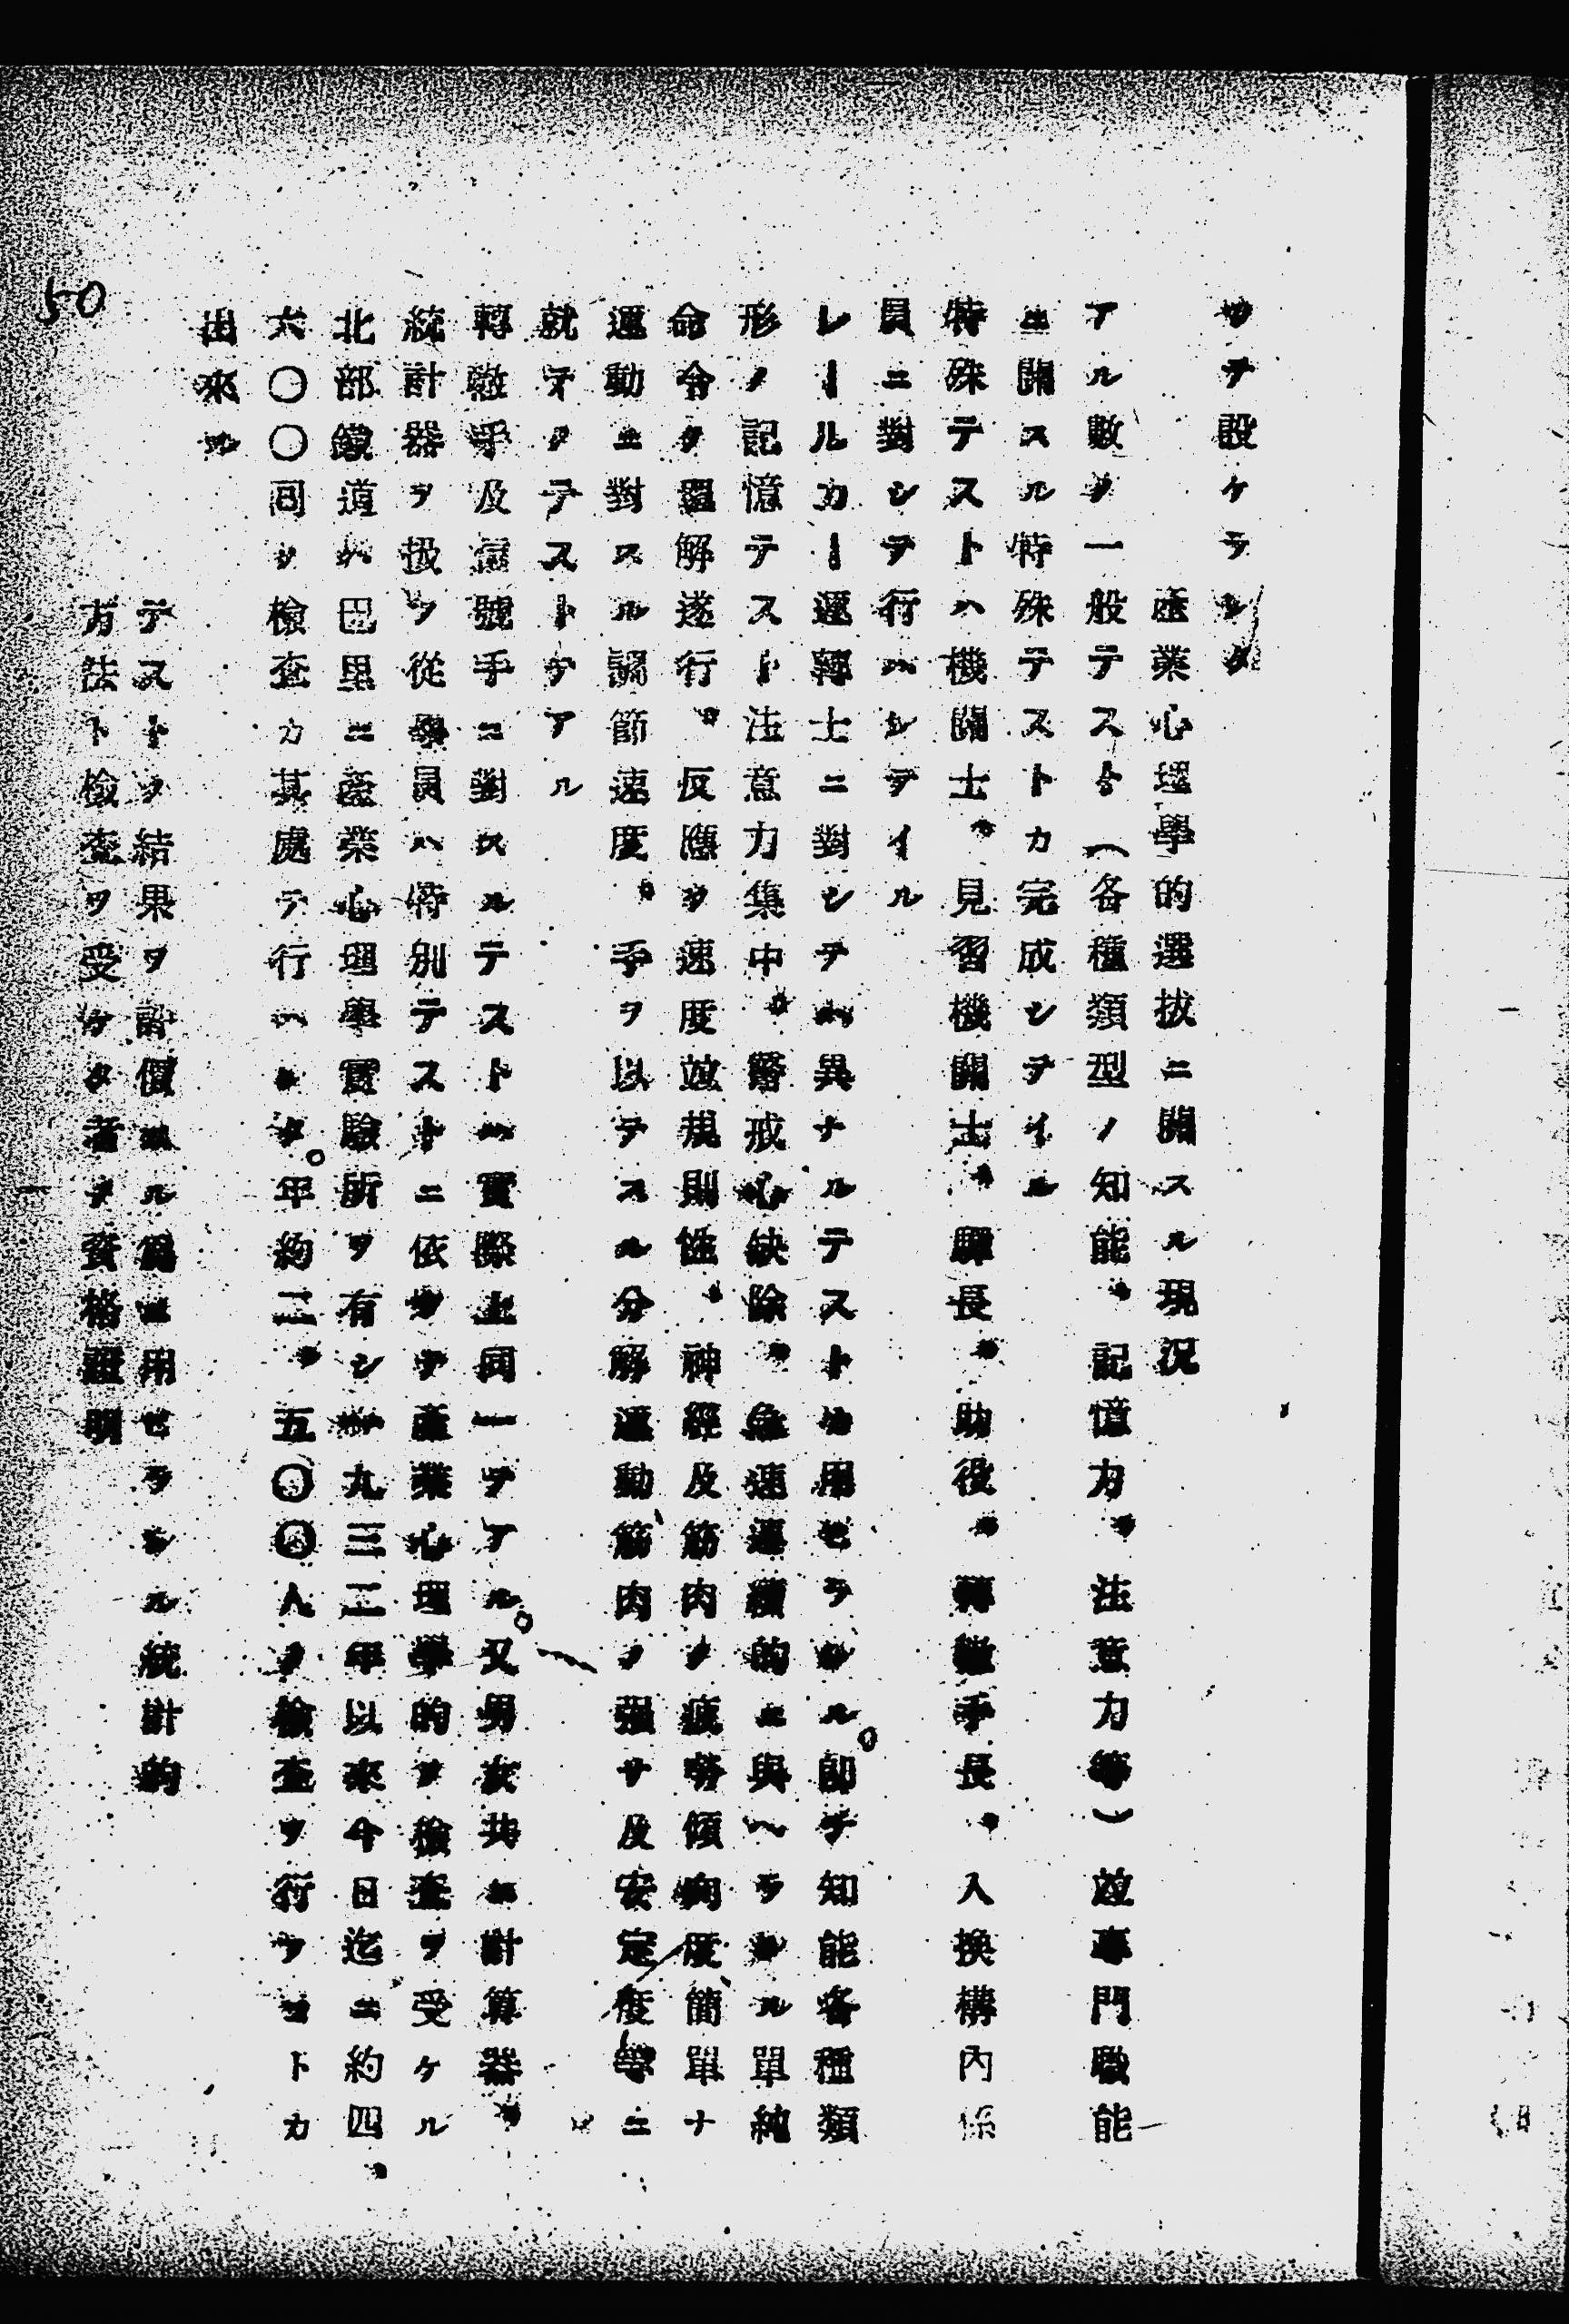 サテ設ケラレタ
産業心理學的選抜ニ關スル現況
アル數ノ一般テスト(各種類型ノ知能、記憶力、注意力等)竝專門職能
ニ關スル特殊テストカ完成シテイル
特殊テストハ機關士、見習機關士、驛長、助役、轉轍手長、入換構内係
員ニ對シテ行ハレテイル
レールカー運轉士ニ對シテハ異ナルテストカ用ヒラレル即チ知能各種類
形ノ記憶テスト注意力集中、警戒心缺除、急速連續的ニ與ヘラレル單純
命令ノ理解遂行、反應ノ速度竝規則性、神經及筋肉ノ疲勞傾向度簡單ナ
運動ニ對スル調節速度、手ヲ以テスル分解運動筋肉ノ强サ及安定度等ニ
就テノテストテアル
轉轍手及信號手ニ對スルテストハ實際上同一テアル又男女共ニ計算器、
統計器ヲ扱フ從業員ハ特別テストニ依ツテ產業心理學的ヲ檢査ヲ受ケル
北部鐵道ハ巴里ニ產業心理學實驗所ヲ有シ一九三二年以來今日迄ニ約四、
六〇〇回ノ檢査カ其處テ行ハレタ年約二、五〇〇人ノ檢査ヲ行フコトカ
出來ル
テストノ結果ヲ評價スル爲ニ用ヒラレル統計的
方法ト檢査ヲ受ケタ者ノ資格證明
50